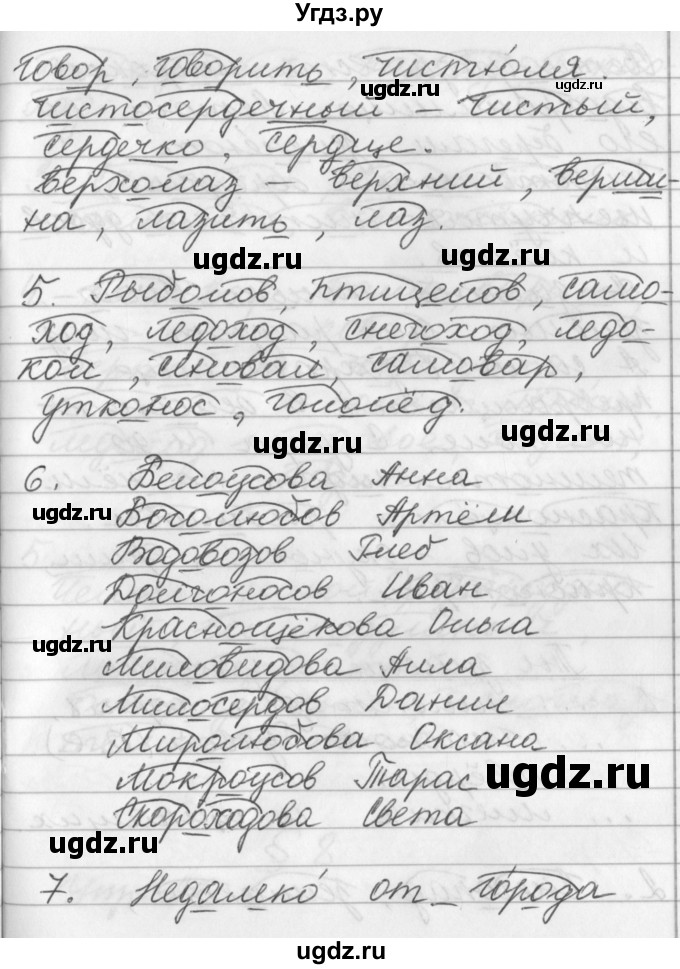 Угдз.ру
говор, говорить, чистюля.
Чистосердечный – чистый,
сердечко, сердце.
верхолаз – верхний, верши-
на, лазить, лаз.
5. Рыболов, птицелов, само-
ход, ледоход, снегоход, ледо-
кол, сеновал, самовар,
утконос, гололёд.
6. Белоусова Анна
Боголюбов Артём
Водовозов Глеб
Долгоносов Иван
Краснощёкова Ольга
Миловидова Алла
Милосердов Данил
Миролюбова Оксана
Мокроусов Тарас
Скороходова Света
7. Недалеко от города
ugdz.ru
ugdz.ru
ugdz.ru
ugdz.ru
ugdz.ru
ugdz.ru
ugdz.ru
ugdz.ru
ugdz.ru
ugdz.ru
ugdz.ru
ugdz.ru